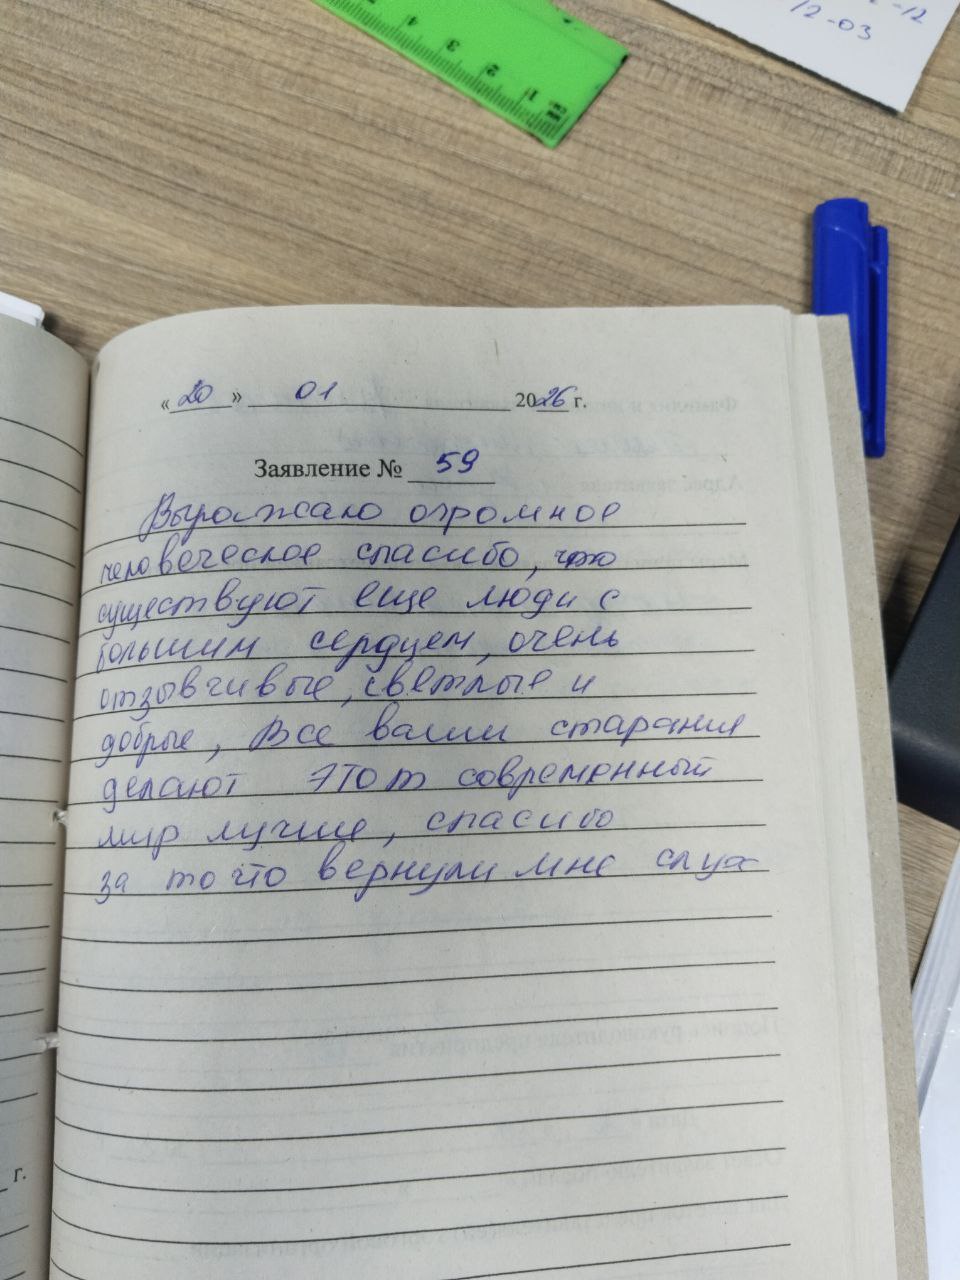 12-03
4 3 2 1 0
« 20 » 01 2026 г.
Заявление № 59
Выражаю огромное
человеческое спасибо, что
существуют еще люди с
большим сердцем, очень
отзывчивые, светлые и
добрые, Все ваши старания
делают этот современный
мир лучше, спасибо
за то что вернули мне слух
г.